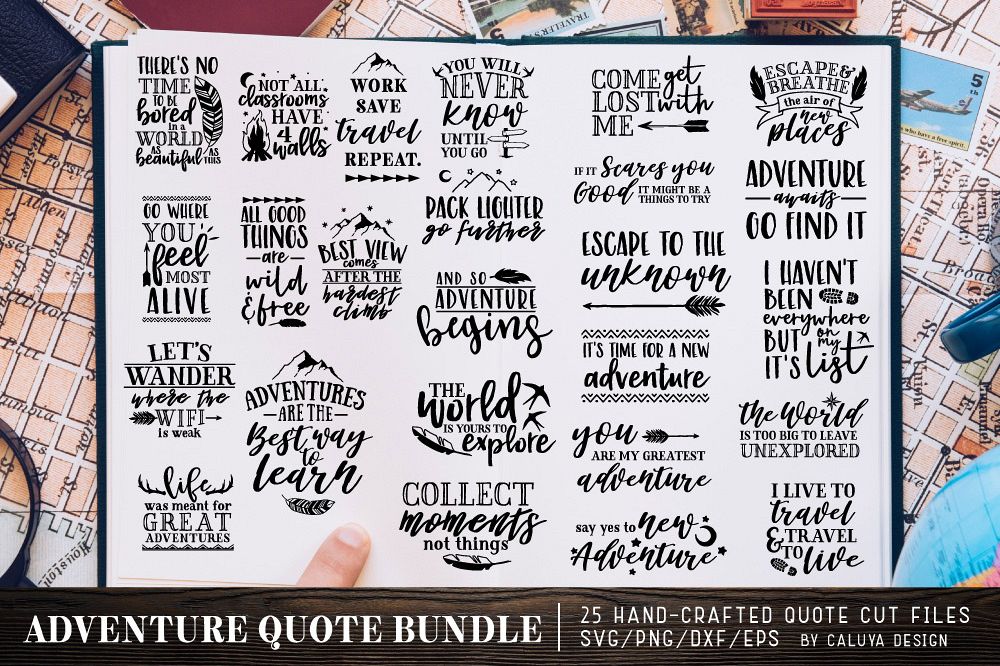 THERE'S NO
TIME
TO BE
bored
in a
WORLD
AS
beautiful
AS
THIS
NOT ALL
classrooms
HAVE
4
walls
WORK
SAVE
travel
REPEAT.
YOU WILL
NEVER
know
UNTIL
YOU GO
COME get
LOST with
ME
ESCAPE &
BREATHE
the air of
new
places
GO WHERE
YOU
feel
MOST
ALIVE
ALL GOOD
THINGS
- are -
wild
& free
BEST VIEW
comes
AFTER THE
hardest
climb
PACK LIGHTER
go further
IF IT Scares you
Good IT MIGHT BE A
THINGS TO TRY
ADVENTURE
awaits
GO FIND IT
AND SO
ADVENTURE
begins
ESCAPE TO THE
unknown
I HAVEN'T
BEEN
everywhere
BUT on my
IT'S list
LET'S
WANDER
where the
WIFI
is weak
ADVENTURES
-ARE THE-
Best way
to
learn
THE
world
IS YOURS TO
explore
IT'S TIME FOR A NEW
adventure
you
ARE MY GREATEST
adventure
the world
IS TOO BIG TO LEAVE
UNEXPLORED
life
was meant for
GREAT
ADVENTURES
COLLECT
moments
not things
say yes to new
Adventure
I LIVE TO
travel
& TRAVEL
TO live
TRAVELER
5
th
who have a free spirit.
ADVENTURE QUOTE BUNDLE
25 HAND-CRAFTED QUOTE CUT FILES
SVG/PNG/DXF/EPS BY CALUYA DESIGN